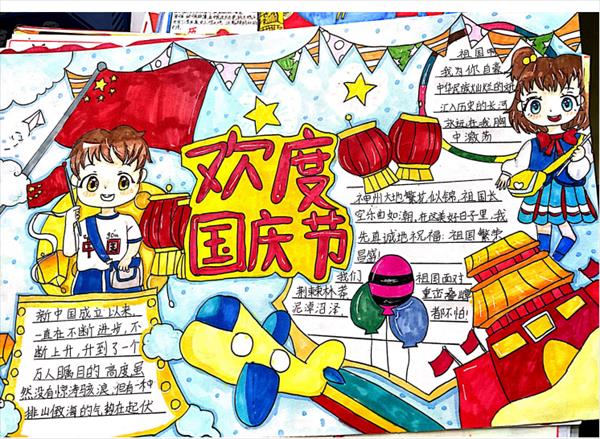 欢度
国庆节
祖国啊
我为你自豪
中华民族灿烂的
汇入历史的长河
永远在我胸
中激荡
神州大地繁花似锦,祖国长
空乐曲如潮,在这美好日子里,我
先真诚地祝福:祖国繁荣
昌盛!
我们
祖国面对
荆棘林莽
重峦叠嶂
泥潭沼泽
都不怕!
中国
新中国成立以来,
一直在不断进步,不
断上升,升到了一个
万人瞩目的高度,虽
然没有惊涛骇浪,但有一种
排山倒海的气势在起伏